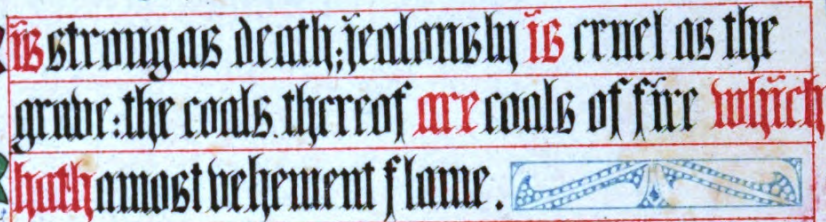 is strong as death; jealously is cruel as the
grave: the coals thereof are coals of fire which
hath a most vehement flame.